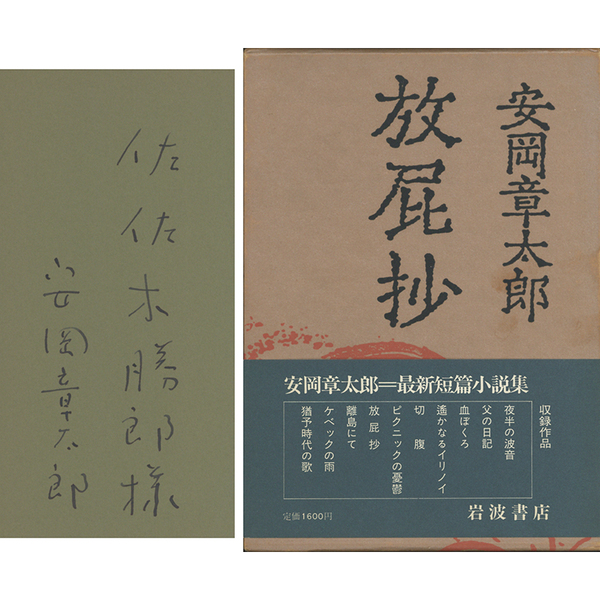 佐佐木勝郎様
安岡章太郎
安岡章太郎
放屁抄
安岡章太郎=最新短篇小説集
収録作品
夜半の波音
父の日記
血ぼくろ
遙かなるイリノイ
切腹
ピクニックの憂鬱
放屁抄
離島にて
ケベックの雨
猶予時代の歌
定価1600円
岩波書店